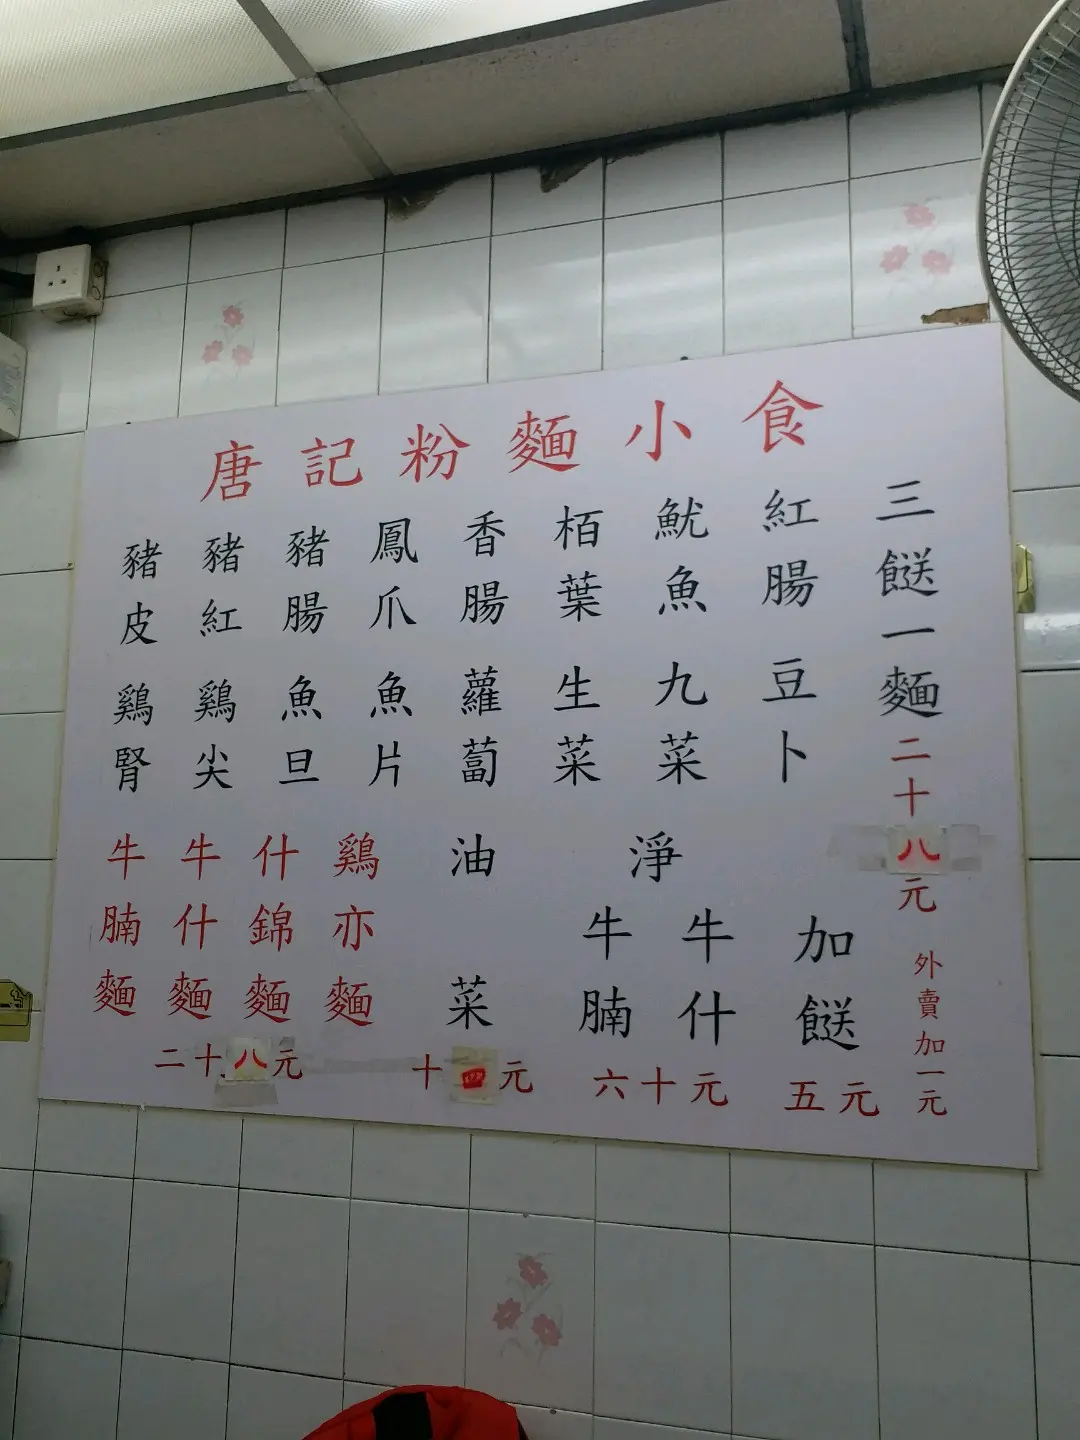 唐記粉麵小食
三餸一麵二十八元
外賣加一元
紅腸
魷魚
栢葉
香腸
鳳爪
豬腸
豬紅
豬皮
豆卜
九菜
生菜
蘿蔔
魚片
魚旦
鷄尖
鷄腎
加餸
五元
淨
牛什
牛腩
六十元
油菜
十四元
鷄亦麵
什錦麵
牛什麵
牛腩麵
二十八元